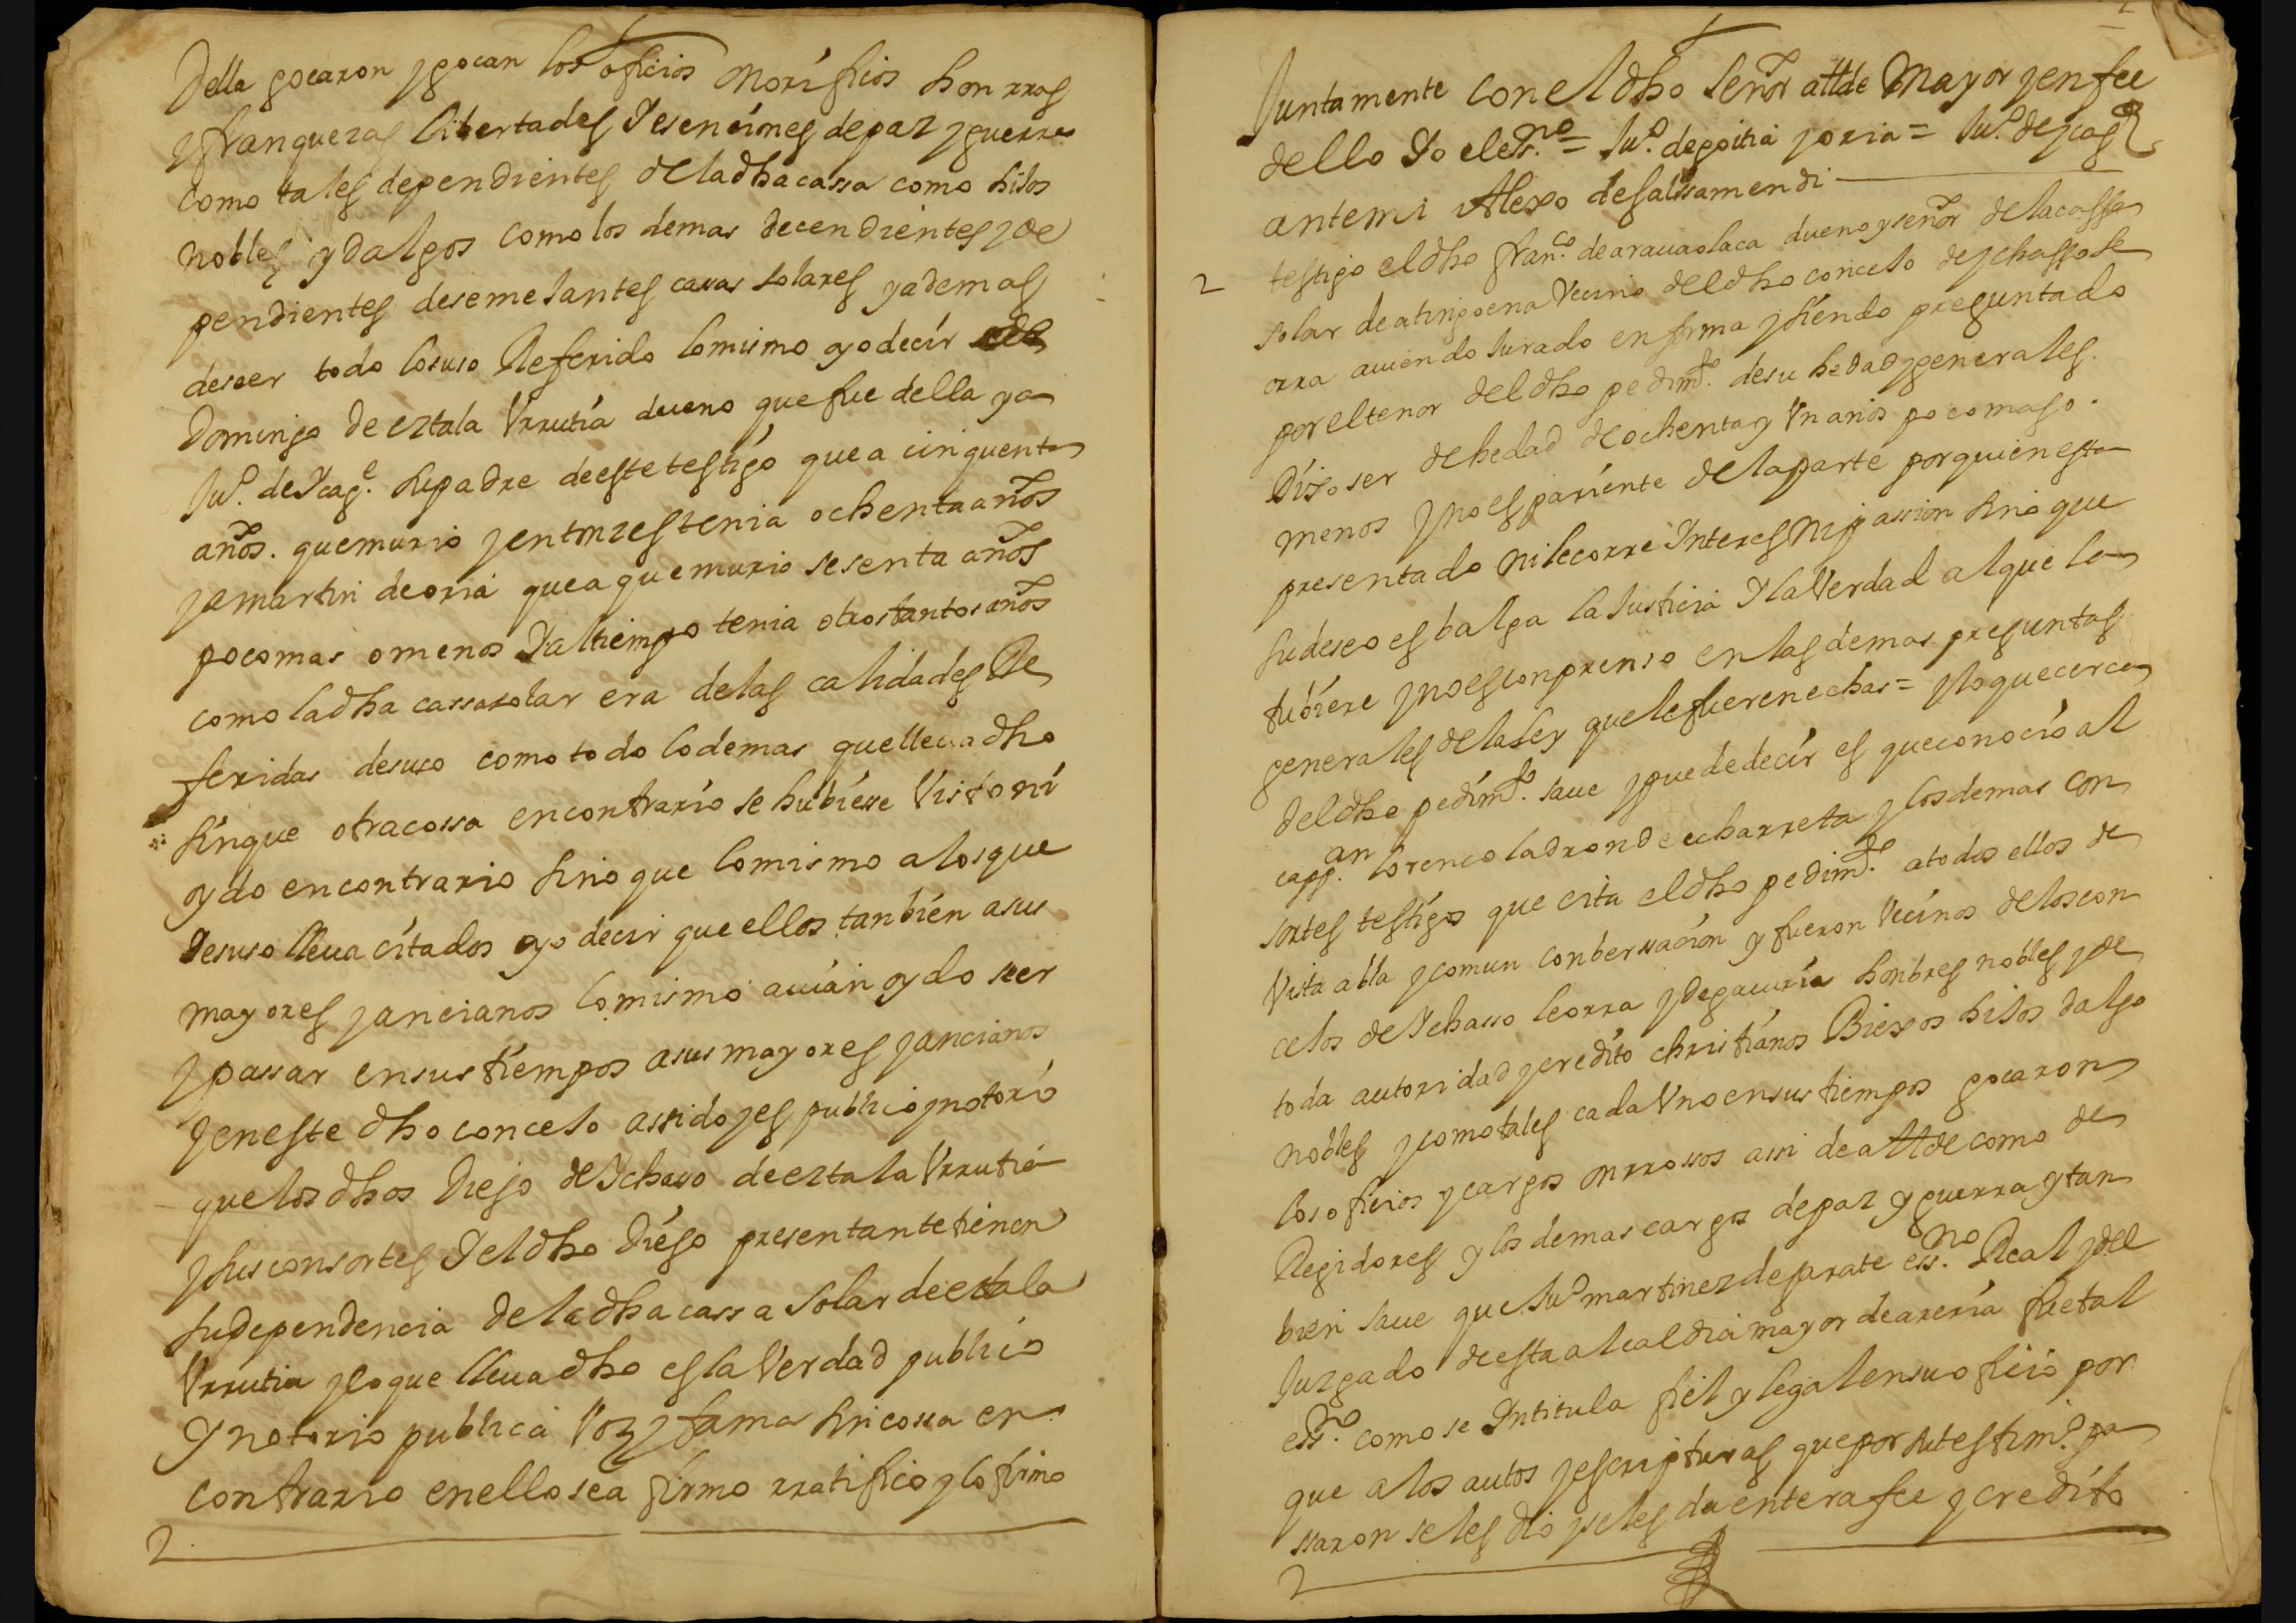 della goçaron y goçan los oficios noríficos honrras
y franqueças libertades y esençiones de paz y guerra
como tales dependientes de la dha cassa como hijos
nobles ydalgos como los demas decendientes y de
pendientes de semejantes casas solares y ademas
de seer todo lo suso Referido lo mismo oyo decír
Domingo de eztala Vrrutía dueno que fue della y a
Juº. de Ycagᵉ. su padre de este testigo que a cinquenta
años. que murio y entonzes tenia ochenta años
y a martin de oria que a que murio sesenta años
poco mas o menos y al tiempo tenia otros tantos años
como la dha cassa solar era de las calidades Re
feridas de suso como todo lo demas que lleua dho
sin que otra cossa en contrario se hubiese Visto ni
oydo en contrario sino que lo mismo a los que
de suso lleua cítados oyo decir que ellos tanbién a sus
mayores y ancianos lo mismo auian oydo seer
y passar en sus tíempos a sus mayores y ancianos
y en este dho concejo assido y es publico y notorio
que los dhos Diego de Ychaso de eztala Vrrutia
y sus consortes y el dho Diégo presentante tienen
su dependencia de la dha cassa solar de eztala
Vrrutia y lo que lleua dho es la Verdad publico
y notorio publica Voz y fama sin cossa en
contrario en ello sea firmo rratifico y lo firmo
2
Juntamente con el dho Señor allde Mayor y en fee
dello Yo el esⁿᵒ = Juº. de goitia y oria = Juº. de ycagᵉ
ante mi Alexo de Salssamendi
2 testigo el dho franᶜᵒ. de arauaolaca dueno y señor de la cassa
solar de atingoena Vecino del dho concejo de ychasso le
orra auiendo Jurado en forma y siendo preguntado
por el tenor del dho pedimᵗᵒ. de su hedad y generales.
Dixo ser de hedad de ochenta y Vn anos poco mas o.
menos y no es pariente de la parte por quien esta
presentado ni le corre Interes ni passion sino que
su deseo es balga la Justicia y la Verdad al que la
tubiere y no es conprenso en las demas preguntas
generales de la Ley que le fueren echas = y lo que cerca
del dho pedimᵗᵒ. saue y puede decír es que conocío al
cappᵃⁿ. Lorenço ladron de echarreta y los demas con
sortes testigos que cita el dho pedimᵗᵒ. a todos ellos de
Vista abla y comun conberssacion y fueron Vecinos de los con
cejos de Ychasso leorra y de gauiria honbres nobles y de
toda autoridad y credito christianos Biexos hijos dalgo
nobles y como tales cada Vno en sus tiempos goçaron
los oficios y cargos onrrossos assi de allde como de
Regidores y los demas cargos de paz y guerra y tan
bien saue que Juº martinez de sarate essⁿᵒ. Real y del
Juzgado de esta alcaldia mayor de areria fue tal
essⁿᵒ. como se Intitula fiel y legal en su oficio por
que a los autos y escripturas que por su testimᵒ. pa
ssaron se les dio y se les da entera fee y credito
2